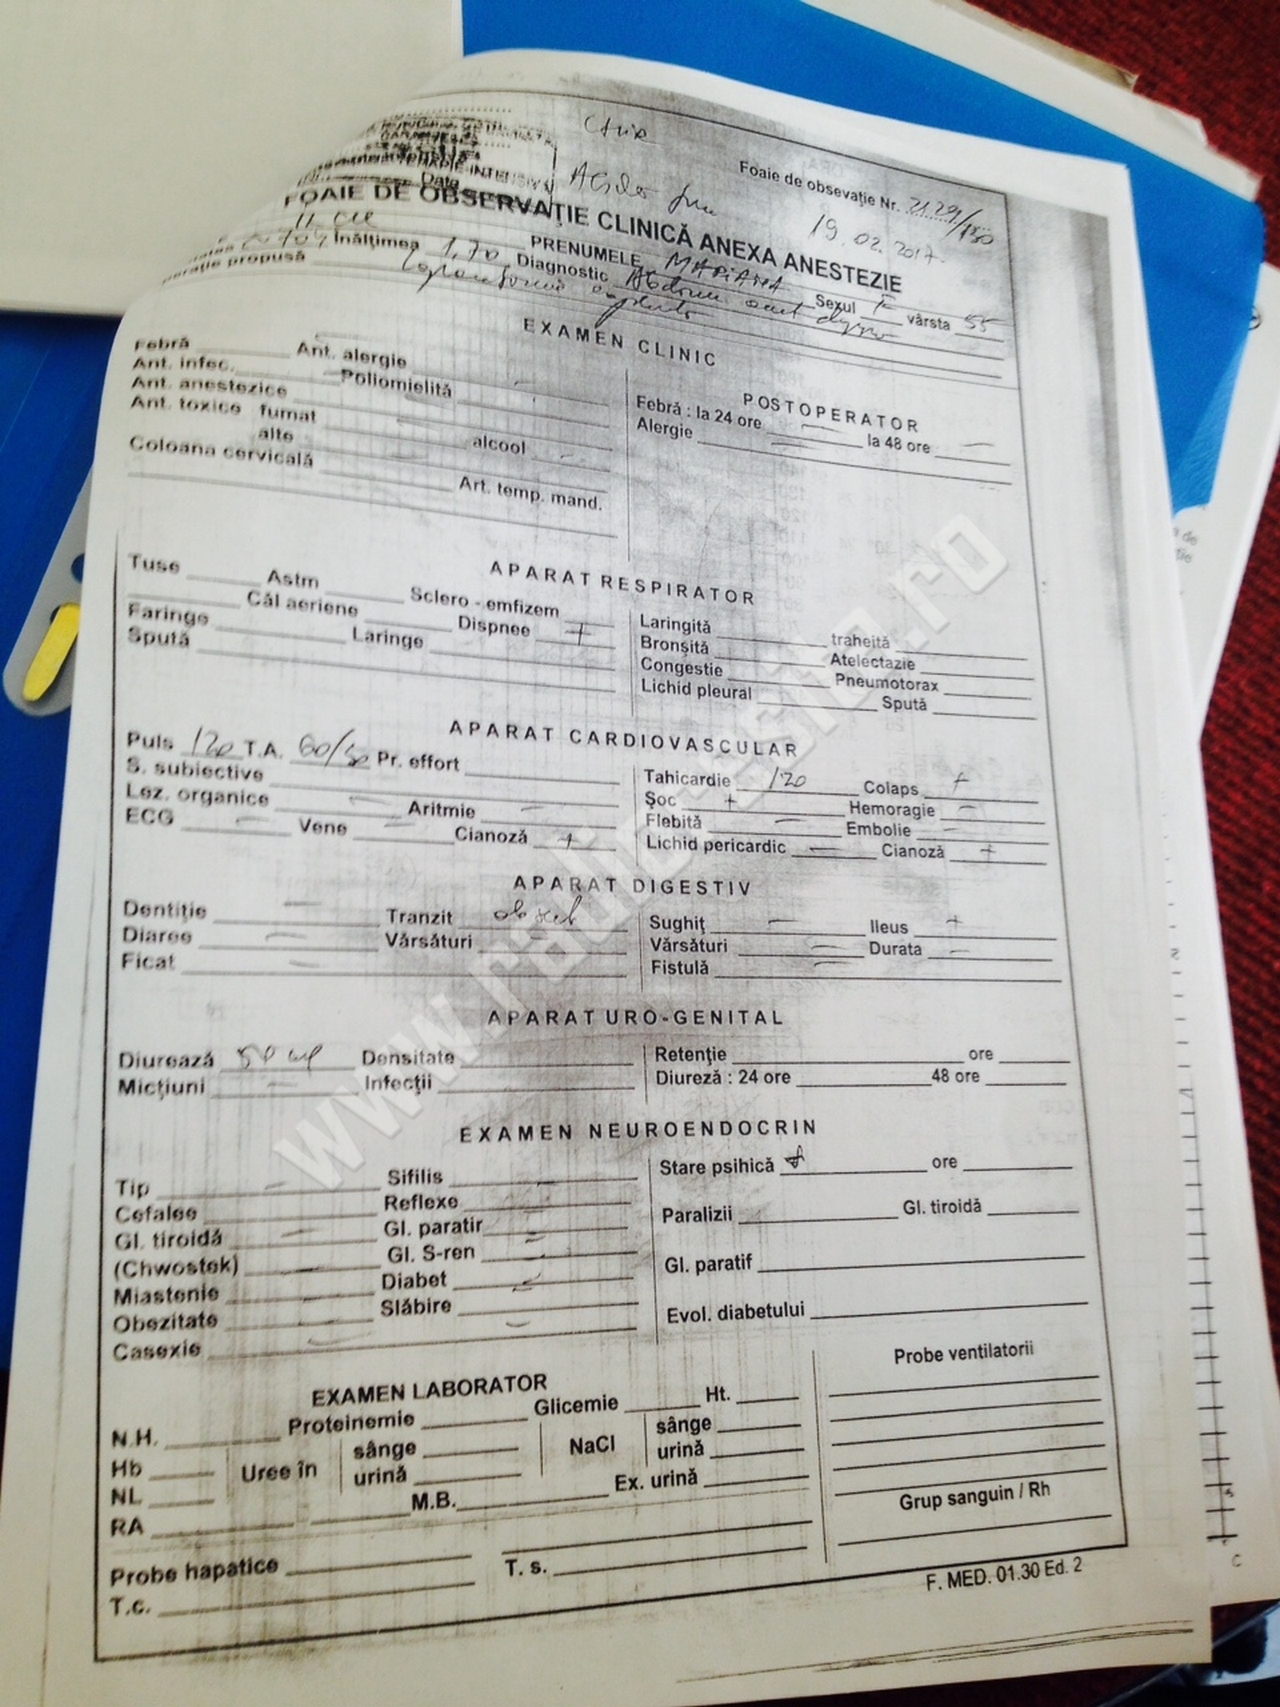 Foaie de obsevaţie Nr. 2129/130
TERAPIE INTENSIV
Date
19.02.2017
FOAIE DE OBSERVAŢIE CLINICĂ ANEXA ANESTEZIE
PRENUMELE MARIANA Sexul F vârsta 55
Inălţimea 1,70 Diagnostic Abdomen acut
propusă
EXAMEN CLINIC
Febră Ant. alergie
Ant. infec. Poliomielită
Ant. anestezice
Ant. toxice fumat
alte alcool
Coloana cervicală Art. temp. mand.
POSTOPERATOR
Febră : la 24 ore — la 48 ore —
Alergie —
APARAT RESPIRATOR
Tuse Astm Sclero - emfizem
Căl aeriene Dispnee +
Faringe Laringe
Spută
Laringită traheită
Bronşită Atelectazie
Congestie Pneumotorax
Lichid pleural Spută
APARAT CARDIOVASCULAR
Puls 120 T.A. 60/30 Pr. effort
S. subiective
Lez. organice — Aritmie —
ECG — Vene — Cianoză +
Tahicardie 120 Colaps +
Şoc + Hemoragie —
Flebită — Embolie —
Lichid pericardic — Cianoză +
APARAT DIGESTIV
Dentiţie — Tranzit absent
Diaree — Vărsături
Ficat —
Sughiţ — Ileus +
Vărsături — Durata —
Fistulă —
APARAT URO-GENITAL
Diurează 50 ml Densitate
Micţiuni — Infecţii
Retenţie ore
Diureză : 24 ore 48 ore
EXAMEN NEUROENDOCRIN
Tip — Sifilis —
Cefalee Reflexe —
Gl. tiroidă — Gl. paratir —
(Chwostek) — Gl. S-ren —
Miastenie — Diabet —
Obezitate — Slăbire —
Casexie —
Stare psihică ore
Paralizii Gl. tiroidă
Gl. paratif
Evol. diabetului
EXAMEN LABORATOR
N.H. Proteinemie Glicemie Ht.
Hb Uree în sânge NaCl sânge
NL urină urină
RA M.B. Ex. urină
Probe hapatice T. s.
T.c.
Probe ventilatorii
Grup sanguin / Rh
F. MED. 01.30 Ed. 2